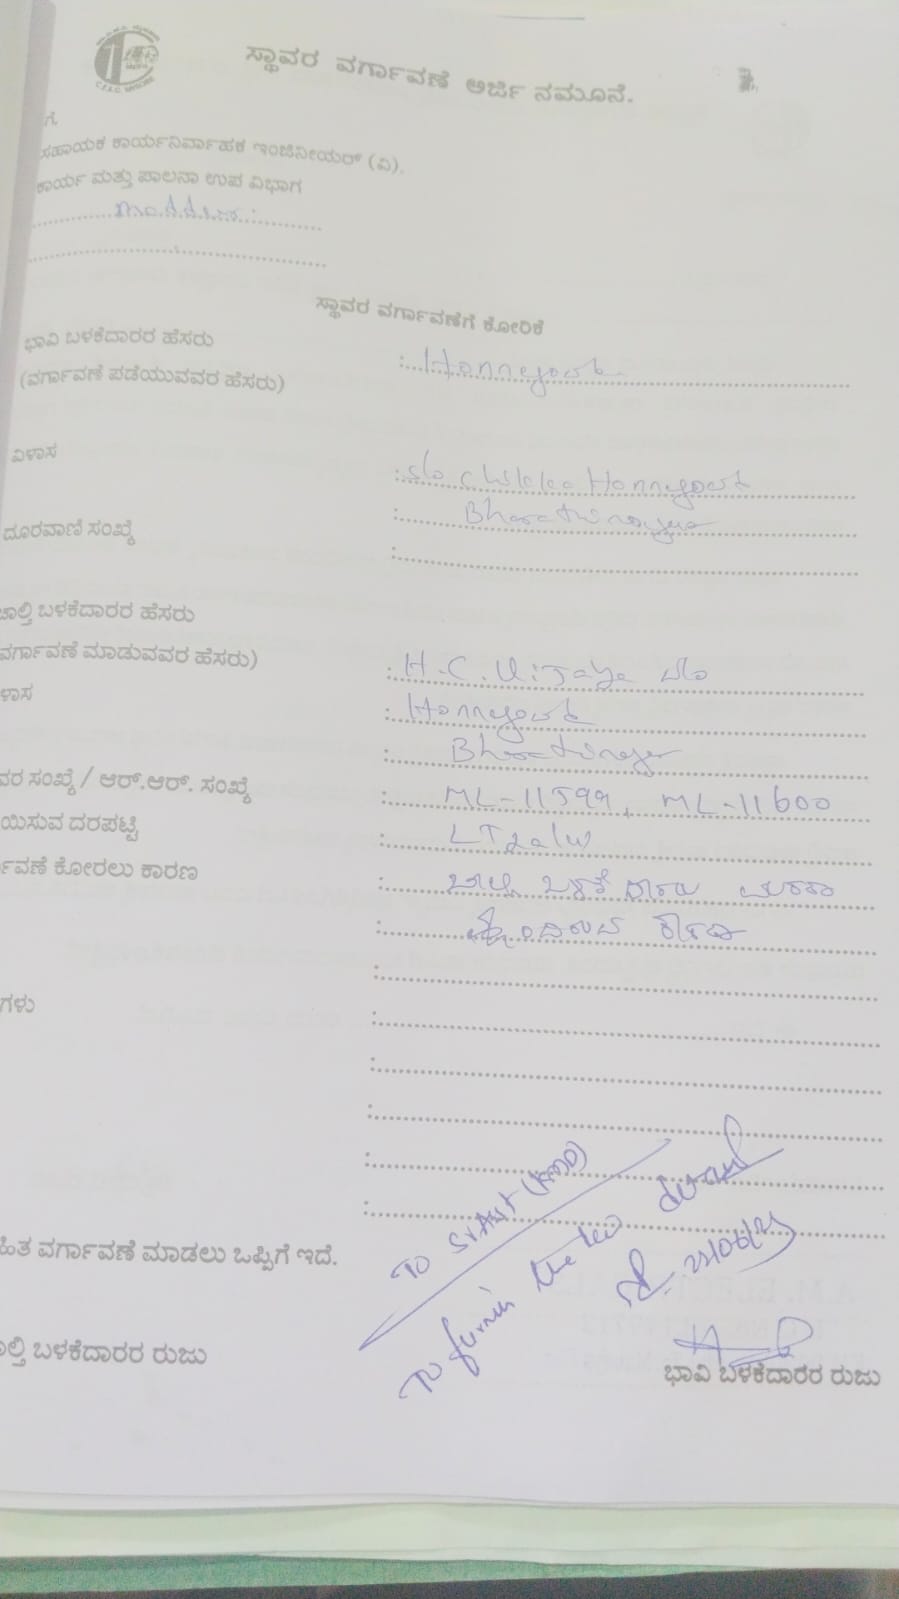 ಸ್ಥಾವರ ವರ್ಗಾವಣೆ ಅರ್ಜಿ ನಮೂನೆ.
ಗೆ,
ಸಹಾಯಕ ಕಾರ್ಯನಿರ್ವಾಹಕ ಇಂಜಿನೀಯರ್ (ವಿ),
ಕಾರ್ಯ ಮತ್ತು ಪಾಲನಾ ಉಪ ವಿಭಾಗ
Maddur
ಸ್ಥಾವರ ವರ್ಗಾವಣೆಗೆ ಕೋರಿಕೆ
ಭಾವಿ ಬಳಕೆದಾರರ ಹೆಸರು
(ವರ್ಗಾವಣೆ ಪಡೆಯುವವರ ಹೆಸರು) : Honnegowda
ವಿಳಾಸ : S/o Chikka Honnegowda
: Bharathinagara
ದೂರವಾಣಿ ಸಂಖ್ಯೆ :
ಚಾಲ್ತಿ ಬಳಕೆದಾರರ ಹೆಸರು
ವರ್ಗಾವಣೆ ಮಾಡುವವರ ಹೆಸರು) : H.C. Vijaya W/o
ಳಾಸ : Honnegowda
: Bharathinagar
ವರ ಸಂಖ್ಯೆ / ಆರ್.ಆರ್. ಸಂಖ್ಯೆ : ML-11599, ML-11600
ಯಿಸುವ ದರಪಟ್ಟಿ :
ವಣೆ ಕೋರಲು ಕಾರಣ : ಚಾಲ್ತಿ ಬಳಕೆದಾರರು ಮರಣ
: ಹೊಂದಿರುವ ಕಾರಣ
ಗಳು
TO
To furnish the
ಹಿತ ವರ್ಗಾವಣೆ ಮಾಡಲು ಒಪ್ಪಿಗೆ ಇದೆ.
ಲ್ತಿ ಬಳಕೆದಾರರ ರುಜು
ಭಾವಿ ಬಳಕೆದಾರರ ರುಜು